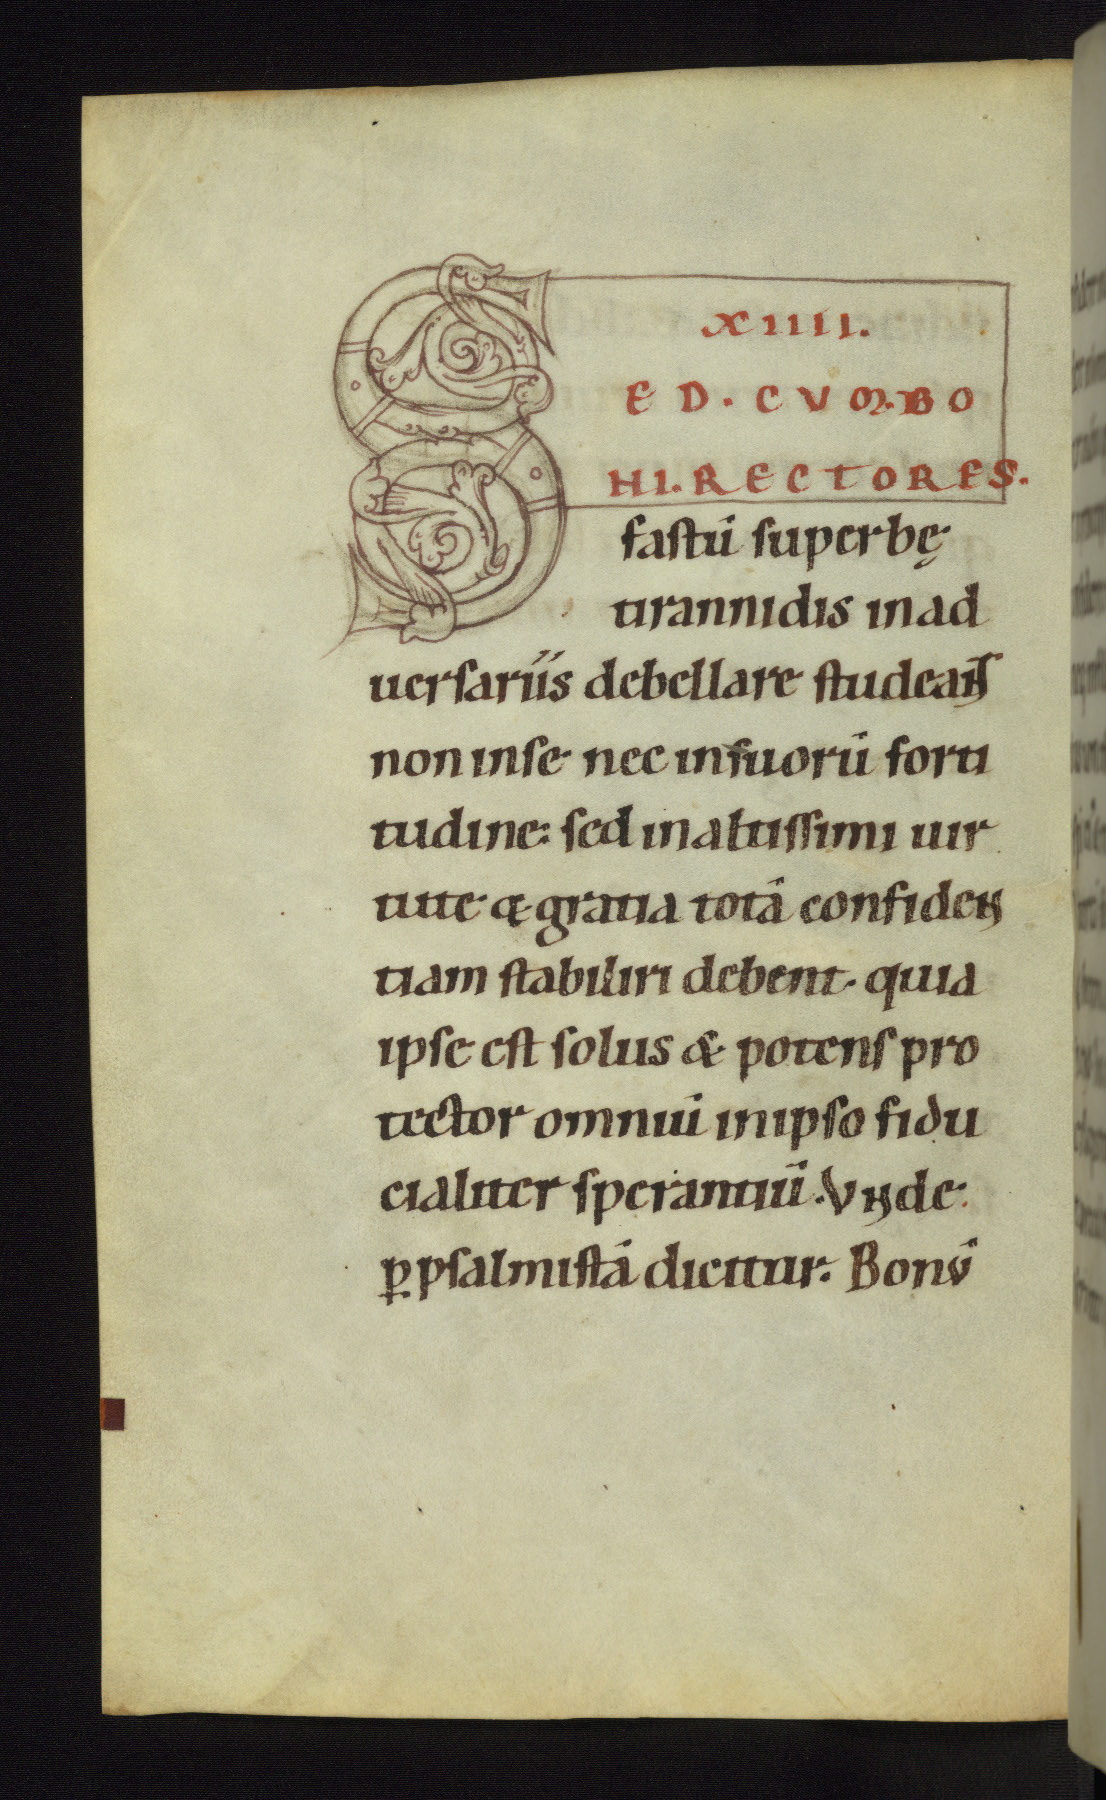 XIIII.
SED. CVM. BO
HI. RECTORES.
fastū superbę
tirannidis in ad
uersariis debellare studeant
non in se nec in suorū forti
tudine: sed in altissimi uir
tute & gratia totā confiden
tiam stabiliri debent. quia
ipse est solus & potens pro
tector omniū in ipso fidu
cialiter sperantiū. Vnde
ꝑ psalmistā dicitur. Bonū